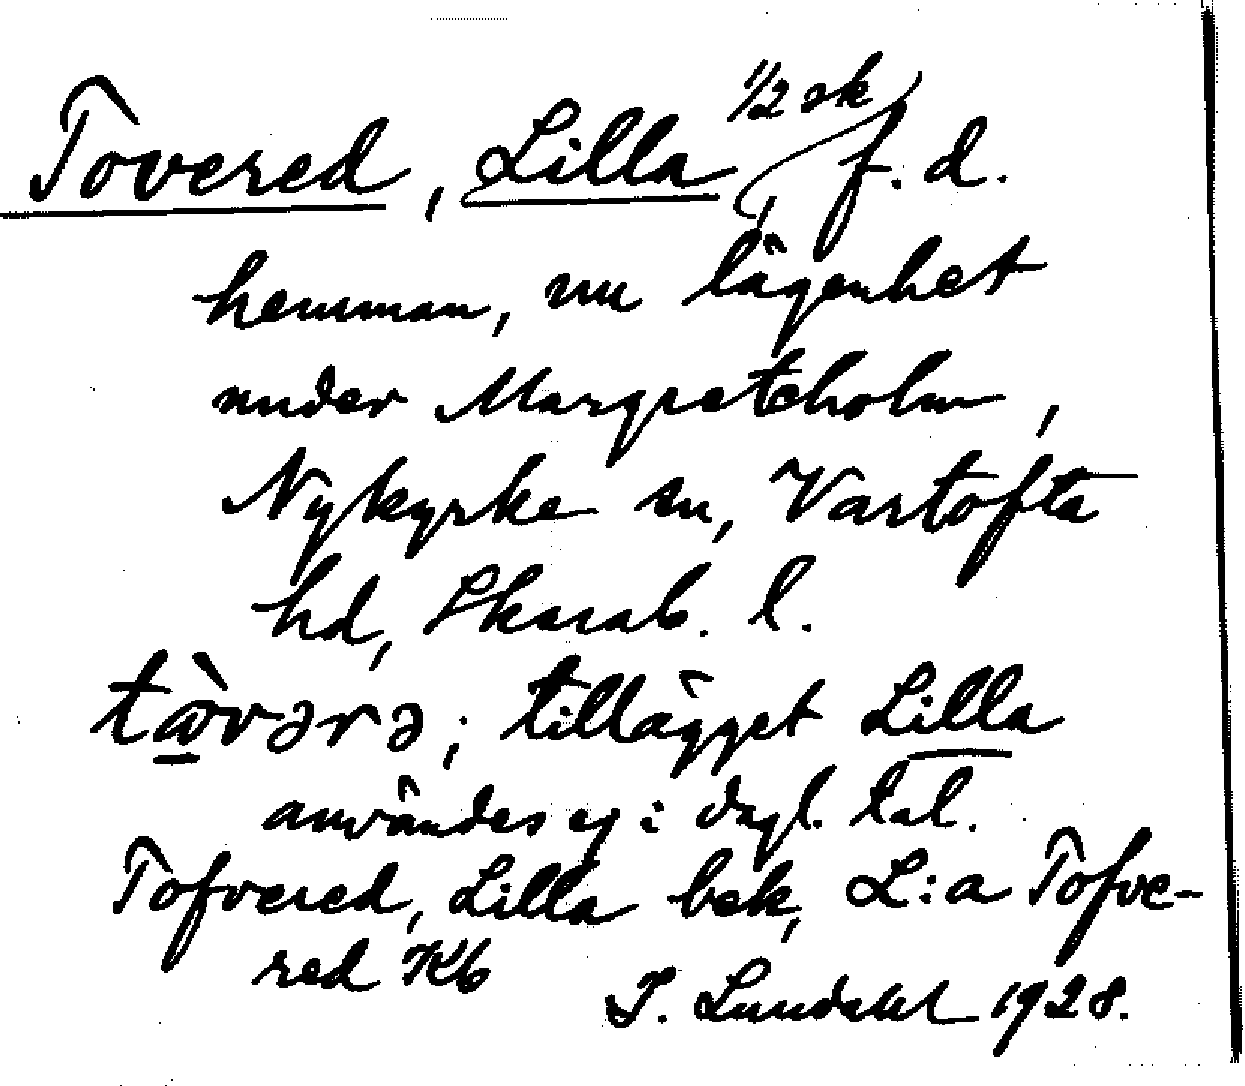 Tovered, Lilla, 1/2 sk f. d.
hemman, nu lägenhet
under Margreteholm,
Nykyrke sn, Vartofta
hd, Skarab. l.
tὼvərə; tillägget Lilla
användes ej i dagl. tal.
Tofvered, Lilla bek, L:a Tofve-
red Kb
I. Lundahl 1928.